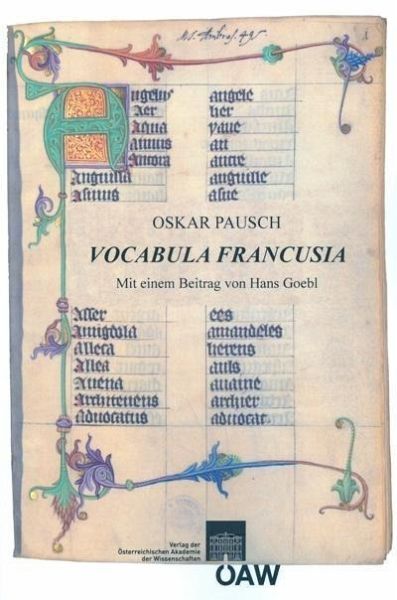 Ms. Ambras. 495.
Angelus angele
Aer her
Aqua yaue
Annus an
Ancora ancre
Anguilla anguille
Asinus asne
OSKAR PAUSCH
VOCABULA FRANCUSIA
Mit einem Beitrag von Hans Goebl
Asser ees
Amigdola amandeles
Alleca herens
Allea auls
Auena auaine
Architenens archier
Aduocatus aduocat
Verlag der
Österreichischen Akademie
der Wissenschaften
ÖAW